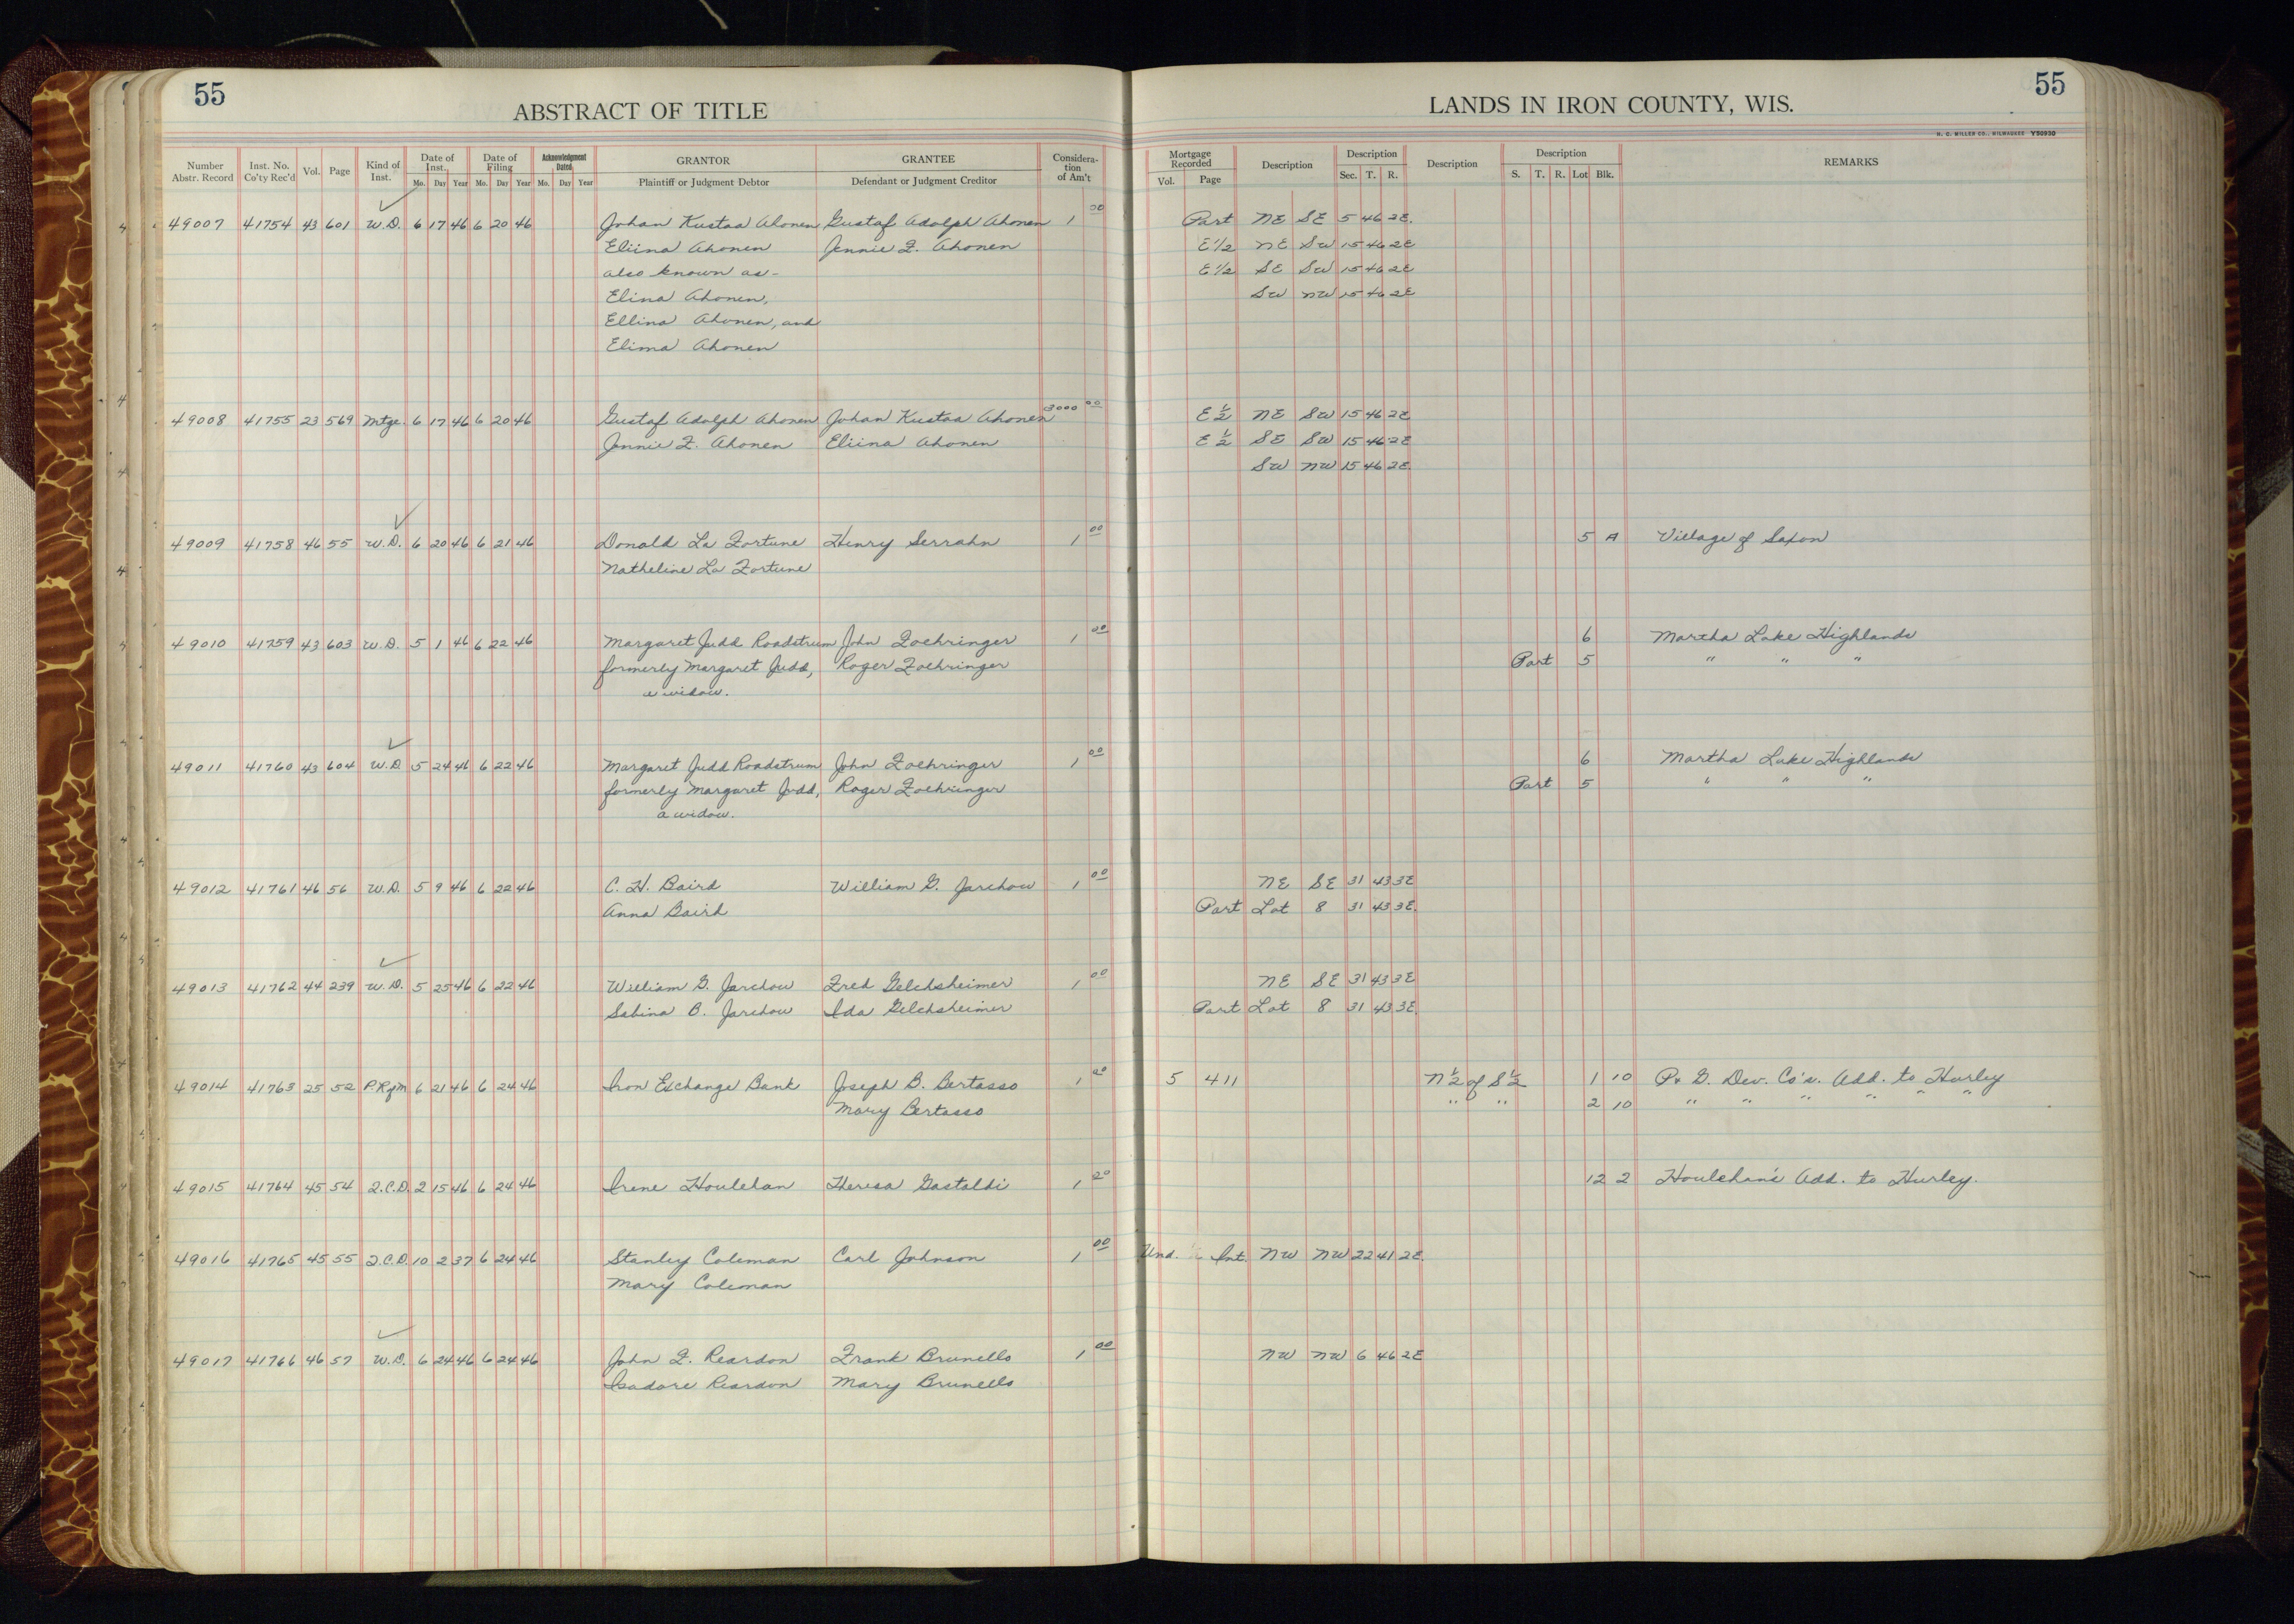 55
ABSTRACT OF TITLE
LANDS IN IRON COUNTY, WIS.
55
H. C. MILLER CO., MILWAUKEE Y50930
Number Abstr. Record Inst. No. Co'ty Rec'd Vol. Page Kind of Inst. Date of Inst. Date of Filing Acknowledgment Dated GRANTOR GRANTEE Considera-tion of Am't Mortgage Recorded Description Description Description Description REMARKS
Mo. Day Year Mo. Day Year Mo. Day Year Plaintiff or Judgment Debtor Defendant or Judgment Creditor Vol. Page Sec. T. R. S. T. R. Lot Blk.
49007 41754 43 601 W.D. 6 17 46 6 20 46 Johan Kustaa Ahonen Gustaf Adolph Ahonen 1 00 Part NE SE 5 46 2E.
Eliina Ahonen Jennie F. Ahonen E 1/2 NE SW 15 46 2E
also known as- E 1/2 SE SW 15 46 2E
Elina Ahonen, SW NW 15 46 2E
Ellina Ahonen, and
Elima Ahonen
49008 41755 23 569 Mtge. 6 17 46 6 20 46 Gustaf Adolph Ahonen Johan Kustaa Ahonen 3000 00 E 1/2 NE SW 15 46 2E
Jennie F. Ahonen Eliina Ahonen E 1/2 SE SW 15 46 2E
SW NW 15 46 2E
49009 41758 46 55 W.D. 6 20 46 6 21 46 Donald La Fortune Henry Serrahn 1 00 5 A Village of Saxon
Natheline La Fortune
49010 41759 43 603 W.D. 5 1 46 6 22 46 Margaret Judd Roadstrum John Zoehringer 1 00 6 Martha Lake Highlands
formerly Margaret Judd, Roger Zoehringer Part 5 " " "
a widow.
49011 41760 43 604 W.D 5 24 46 6 22 46 Margaret Judd Roadstrum John Zoehringer 1 00 6 Martha Lake Highlands
formerly Margaret Judd, Roger Zoehringer Part 5 " " "
a widow.
49012 41761 46 56 W.D. 5 9 46 6 22 46 C. H. Baird William G. Jarchow 1 00 NE SE 31 43 3E
Anna Baird Part Lot 8 31 43 3E.
49013 41762 44 239 W.D. 5 25 46 6 22 46 William G. Jarchow Fred Gelchsheimer 1 00 NE SE 31 43 3E
Sabina B. Jarchow Ida Gelchsheimer Part Lot 8 31 43 3E.
49014 41763 25 52 P.RgM 6 21 46 6 24 46 Iron Exchange Bank Joseph B. Bertasso 1 00 5 411 N 1/2 of S 1/2 1 10 P. & G. Dev. Co's. Add. to Hurley
Mary Bertasso " " 2 10 " " " " " "
49015 41764 45 54 Q.C.D. 2 15 46 6 24 46 Irene Houlehan Theresa Gastaldi 1 00 12 2 Houlehan's Add. to Hurley.
49016 41765 45 55 Q.C.D. 10 2 37 6 24 46 Stanley Coleman Carl Johnson 1 00 Und. Int. NW NW 22 41 2E.
Mary Coleman
49017 41766 46 57 W.D. 6 24 46 6 24 46 John F. Reardon Frank Brunello 1 00 NW NW 6 46 2E
Isadore Reardon Mary Brunello